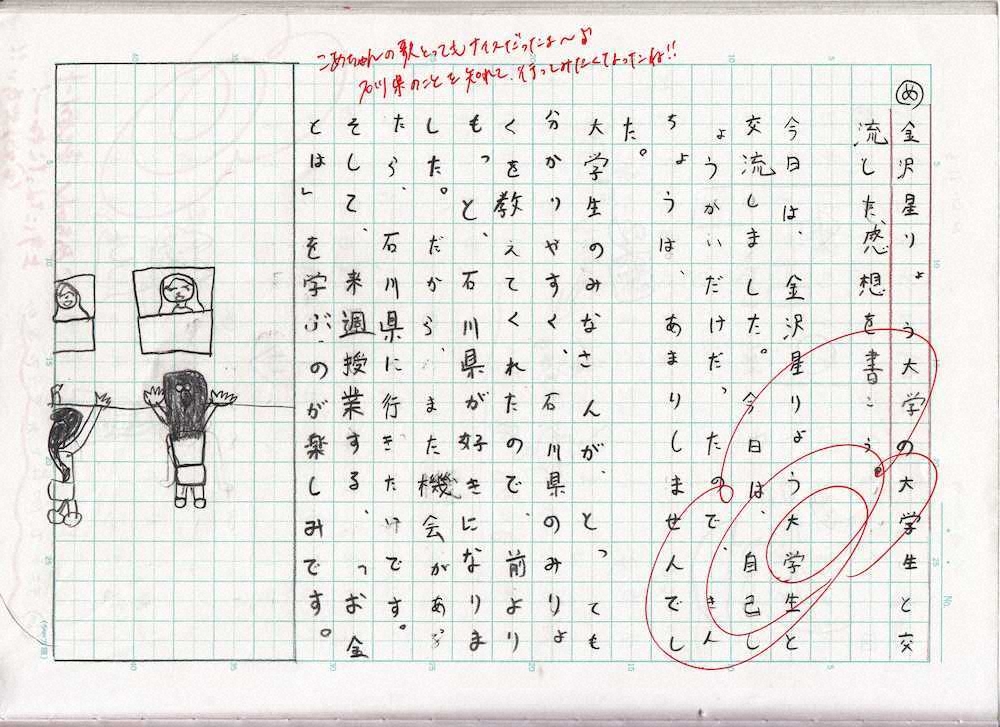 こめちゃんの歌とってもナイスだったよ〜♪
石川県のことを知れて、行ってみたくなったね!!
め 金沢星りょう大学の大学生と交
流した感想を書こう。
今日は、金沢星りょう大学生と
交流しました。今日は、自己し
ょうかいだけだったので、きん
ちょうは、あまりしませんでし
た。
大学生のみなさんが、とっても
分かりやすく、石川県のみりょ
くを教えてくれたので、前より
もっと、石川県が好きになりま
した。だから、また機会があっ
たら、石川県に行きたいです。
そして、来週授業する、「お金
とは」を学ぶのが楽しみです。
No.